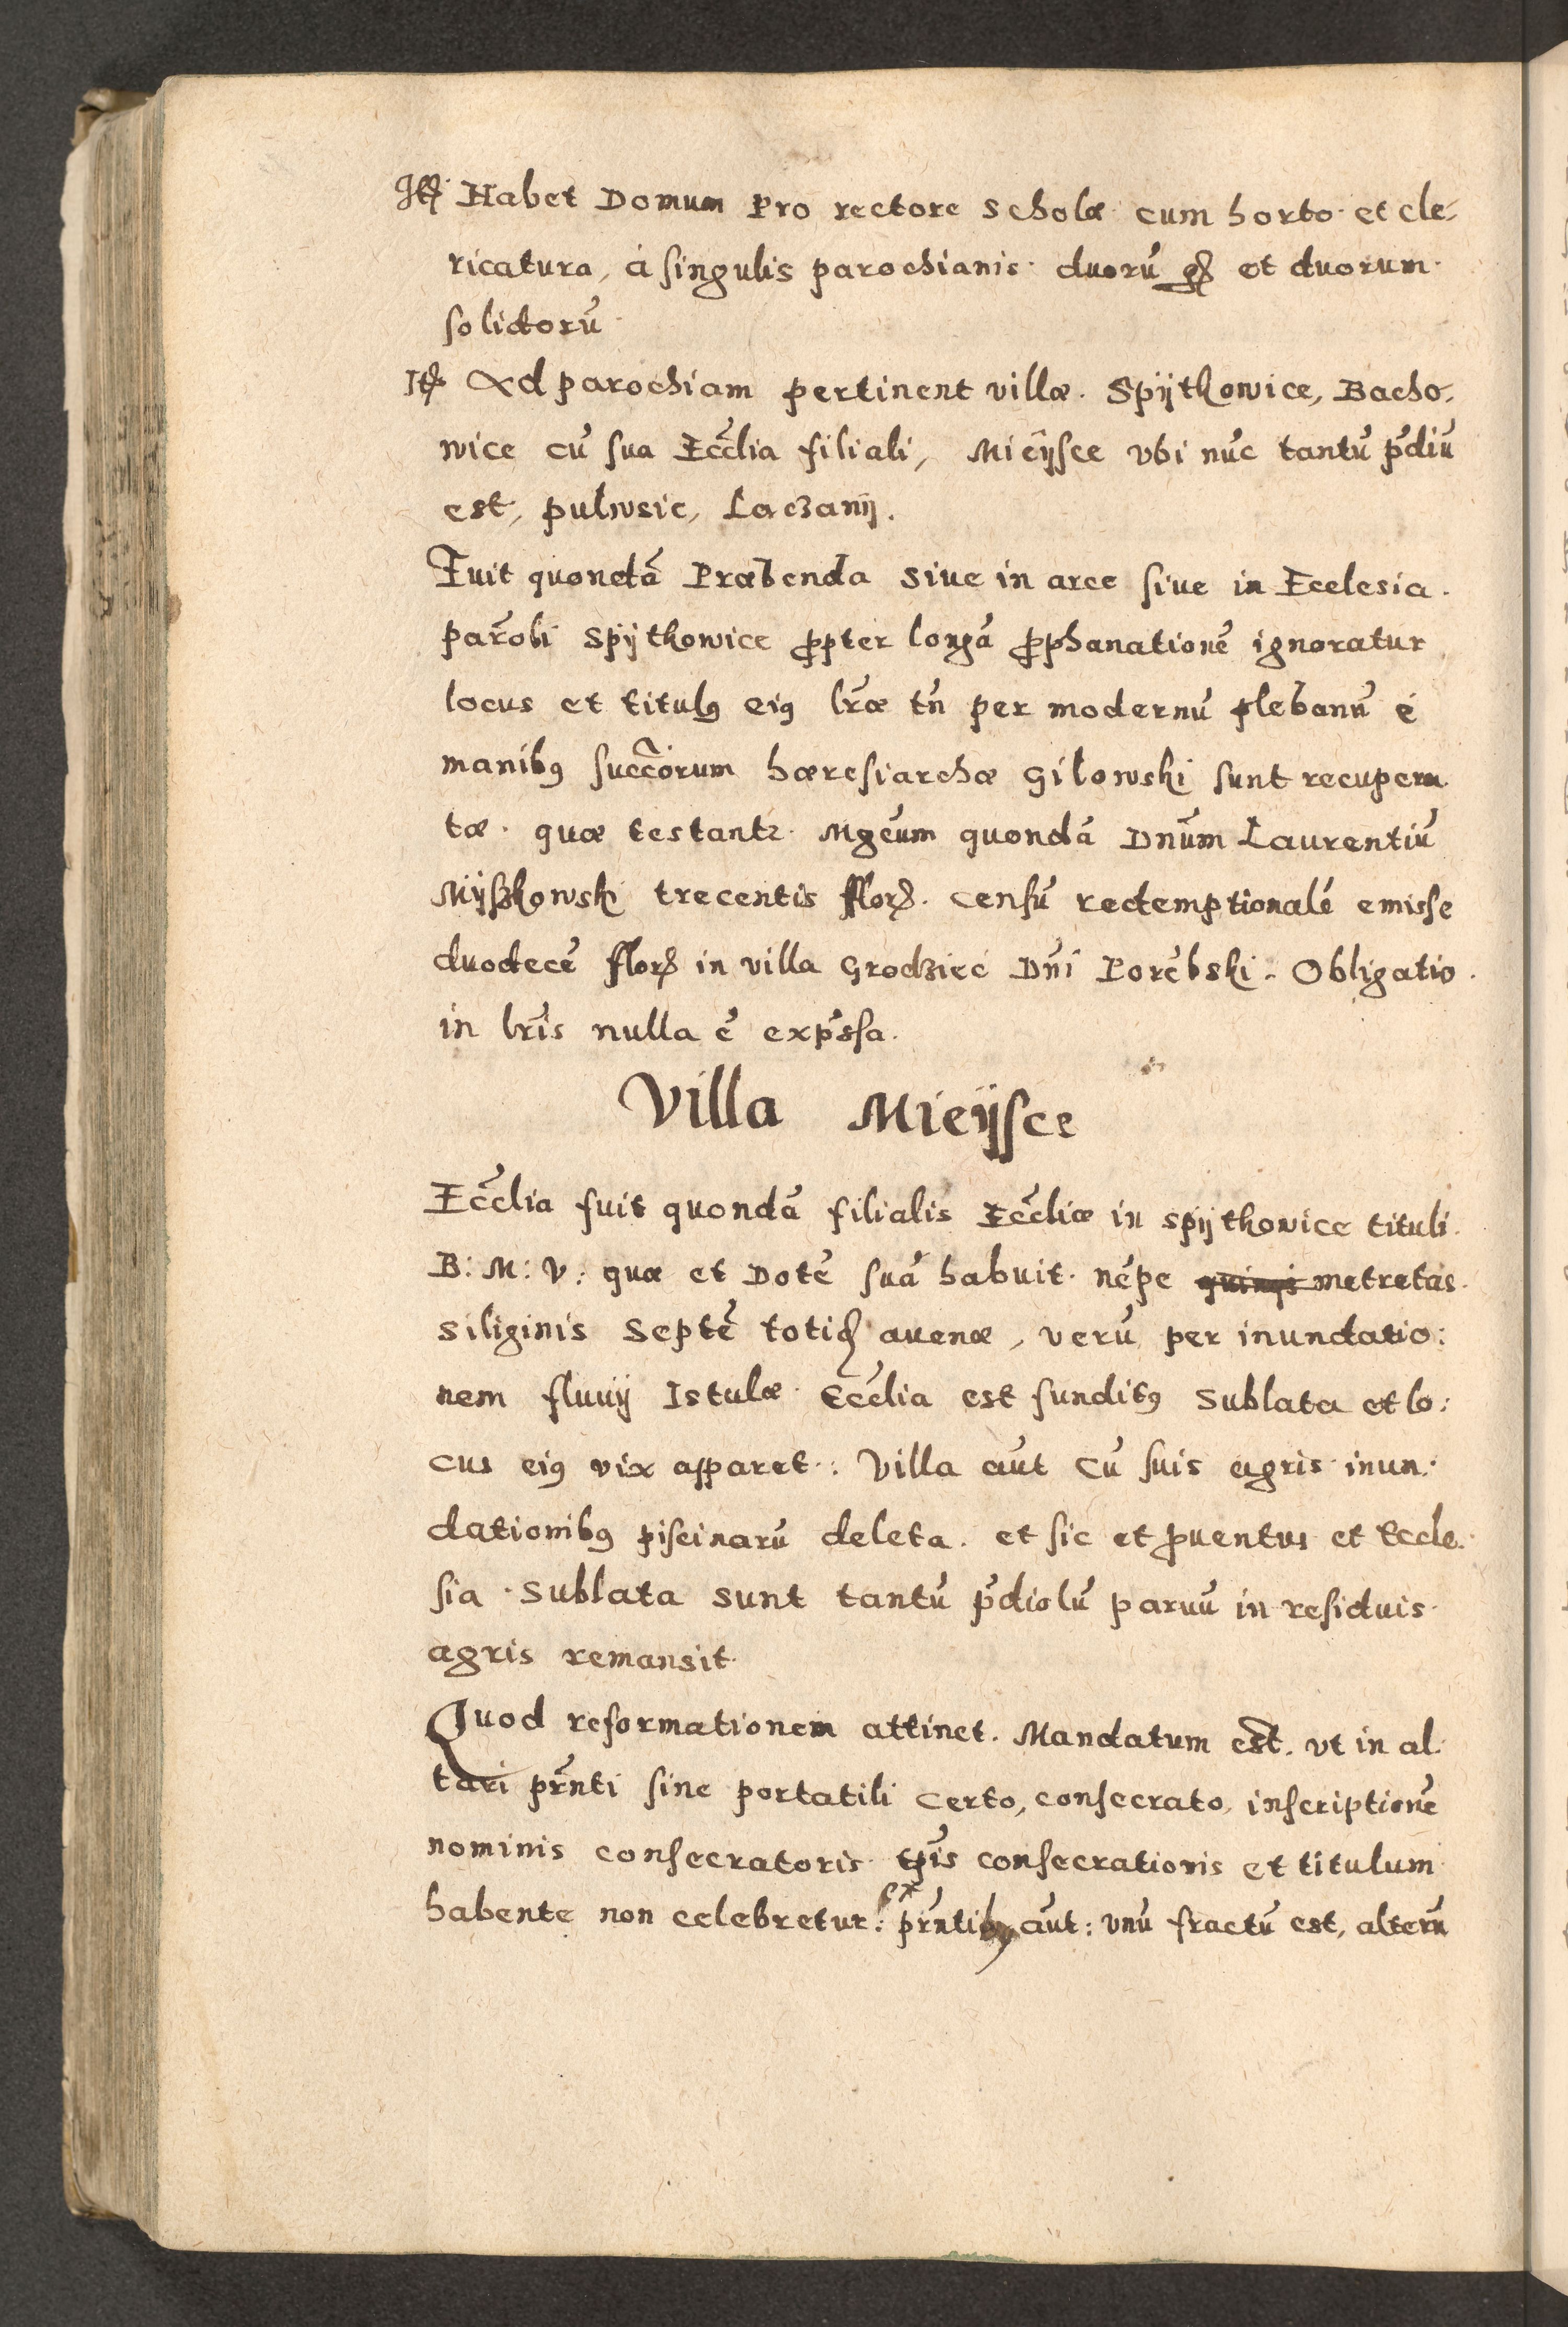 Itē Habet Domum Pro rectore Scholæ cum horto et cle-
ricatura, á singulis parochianis duorū gr̄ et duorum
solidorū
Itē Ad parochiam pertinent villæ. Spÿtkowice, Bacho-
wice cū sua Ecc̄lia filiali, Mieÿsce vbi nūc tantū p̄diū
est, pulwsie, Laczanÿ.
Fuit quondā Præbenda Siue in arce siue in Ecclesia
par̄oli Spÿtkowice ꝓpter longā ꝓphanationē ignoratur
locus et titulꝰ eiꝰ lr̄æ tn̄ per modernū plebanū é
manibꝰ succc̄orum hæresiarchæ Gilowski sunt recupera
tæ. quæ testantꝛ. Mgc̄um quondā Dn̄um Laurentiū
Mÿszkowski trecentis flor̄. Censū redemptionalē emisse
duodecē flor̄ in villa Grodziec Dn̄i Porēbski. Obligatio
in lr̄is nulla ē exp̄ssa.
Villa Mieÿsce
Ecc̄lia fuit quondā filialis Ecc̄liæ in Spÿtkowice tituli
B: M: V: quæ et Dotē suā habuit. nēpe quinqȝ metretas
Siliginis Septē totid̄ auenæ, verū per inundatio:
nem fluuÿ Istulæ Ecc̄lia est funditꝰ Sublata et lo:
cus eiꝰ vix apparet: Villa aūt cū suis agris inun-
dationibꝰ piscinarū deleta. et sic et ꝓuentus et Eccle-
sia Sublata sunt tantū p̄diolū paruū in residuis
agris remansit
Quod reformationem attinet. Mandatum est. vt in al-
tari pr̄nti sine portatili Certo, consecrato, inscriptionē
nominis consecratoris tp̄is consecrationis et titulum
habente non celebretur: ex pr̄ntibꝰ aūt: vnū fractū est, alterū